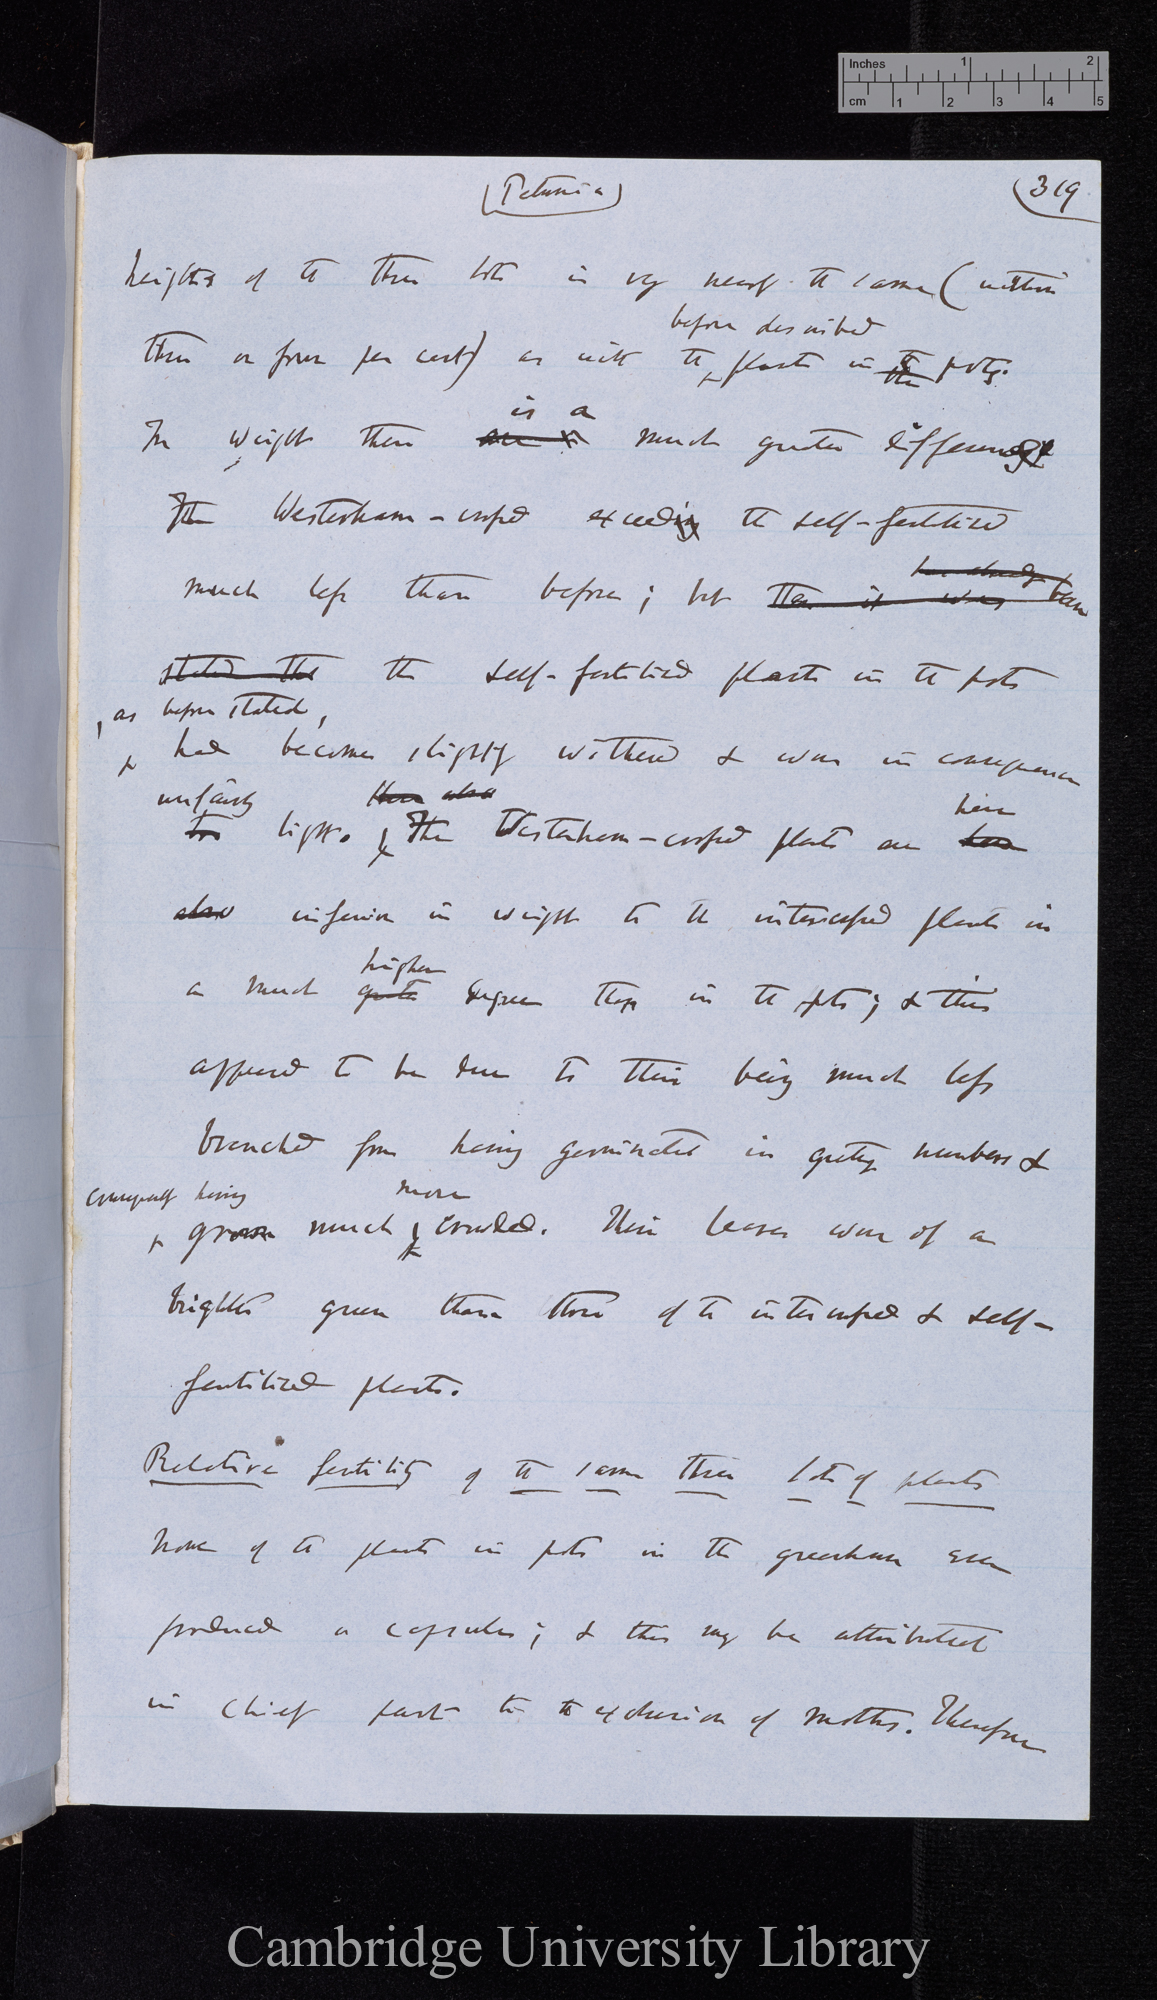 Inches 1 2
cm 1 2 3 4 5
(Petunia)
(319
heights of the three lots is very nearly the same (within
before described
three or four per cent) as with the plants in the pots.
is a
In weight there are much greater difference
The Westerham-crossed exceed the self-fertilised
has already been
much less than before; but then it was
stated that the self-fertilised plants in the pots
, as before stated,
had become slightly withered & were in consequence
unfairly then also here
too light. The Westerham-crossed plants are here
also inferior in weight to the intercrossed plants in
higher
a much greater degree than in the pots; & this
appeared to be due to their being much less
branched from having germinated in greater numbers &
consequently having more
grown much crowded. Their leaves were of a
brighter green than those of the intercrossed & self-
fertilised plants.
Relative fertility of the same three lots of plants
None of the plants in pots in the greenhouse ever
produced a capsule; & this may be attributed
in chief part to the exclusion of moths. Therefore
Cambridge University Library